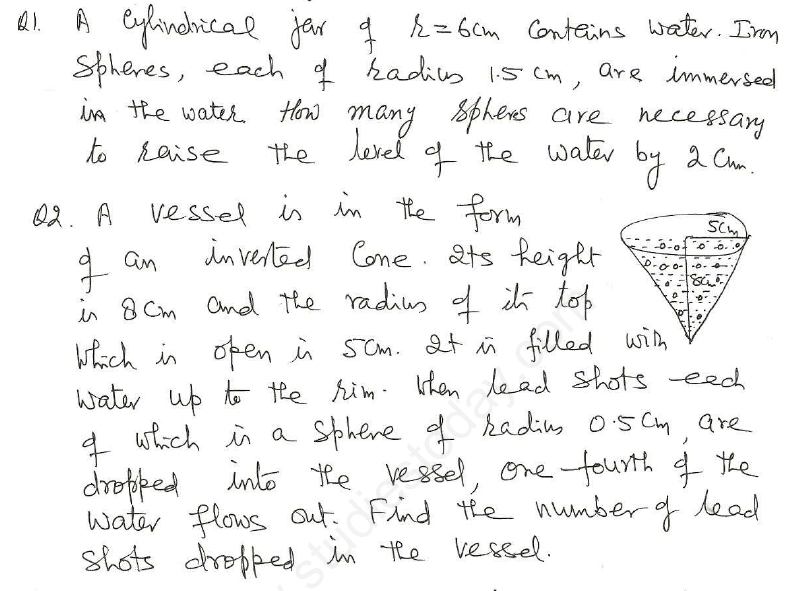 Q1. A Cylindrical jar of r=6cm Contains water. Iron
Spheres, each of radius 1.5 cm, are immersed
in the water How many Spheres are necessary
to raise the level of the water by 2 Cm.
Q2. A vessel is in the form
of an inverted Cone. Its height
is 8 Cm and the radius of its top
which is open is 5Cm. It is filled with
water up to the rim. When lead Shots each
of which is a Sphere of radius 0.5 Cm, are
dropped into the vessel, one fourth of the
water flows out. Find the number of lead
Shots dropped in the vessel.
5Cm
8Cm